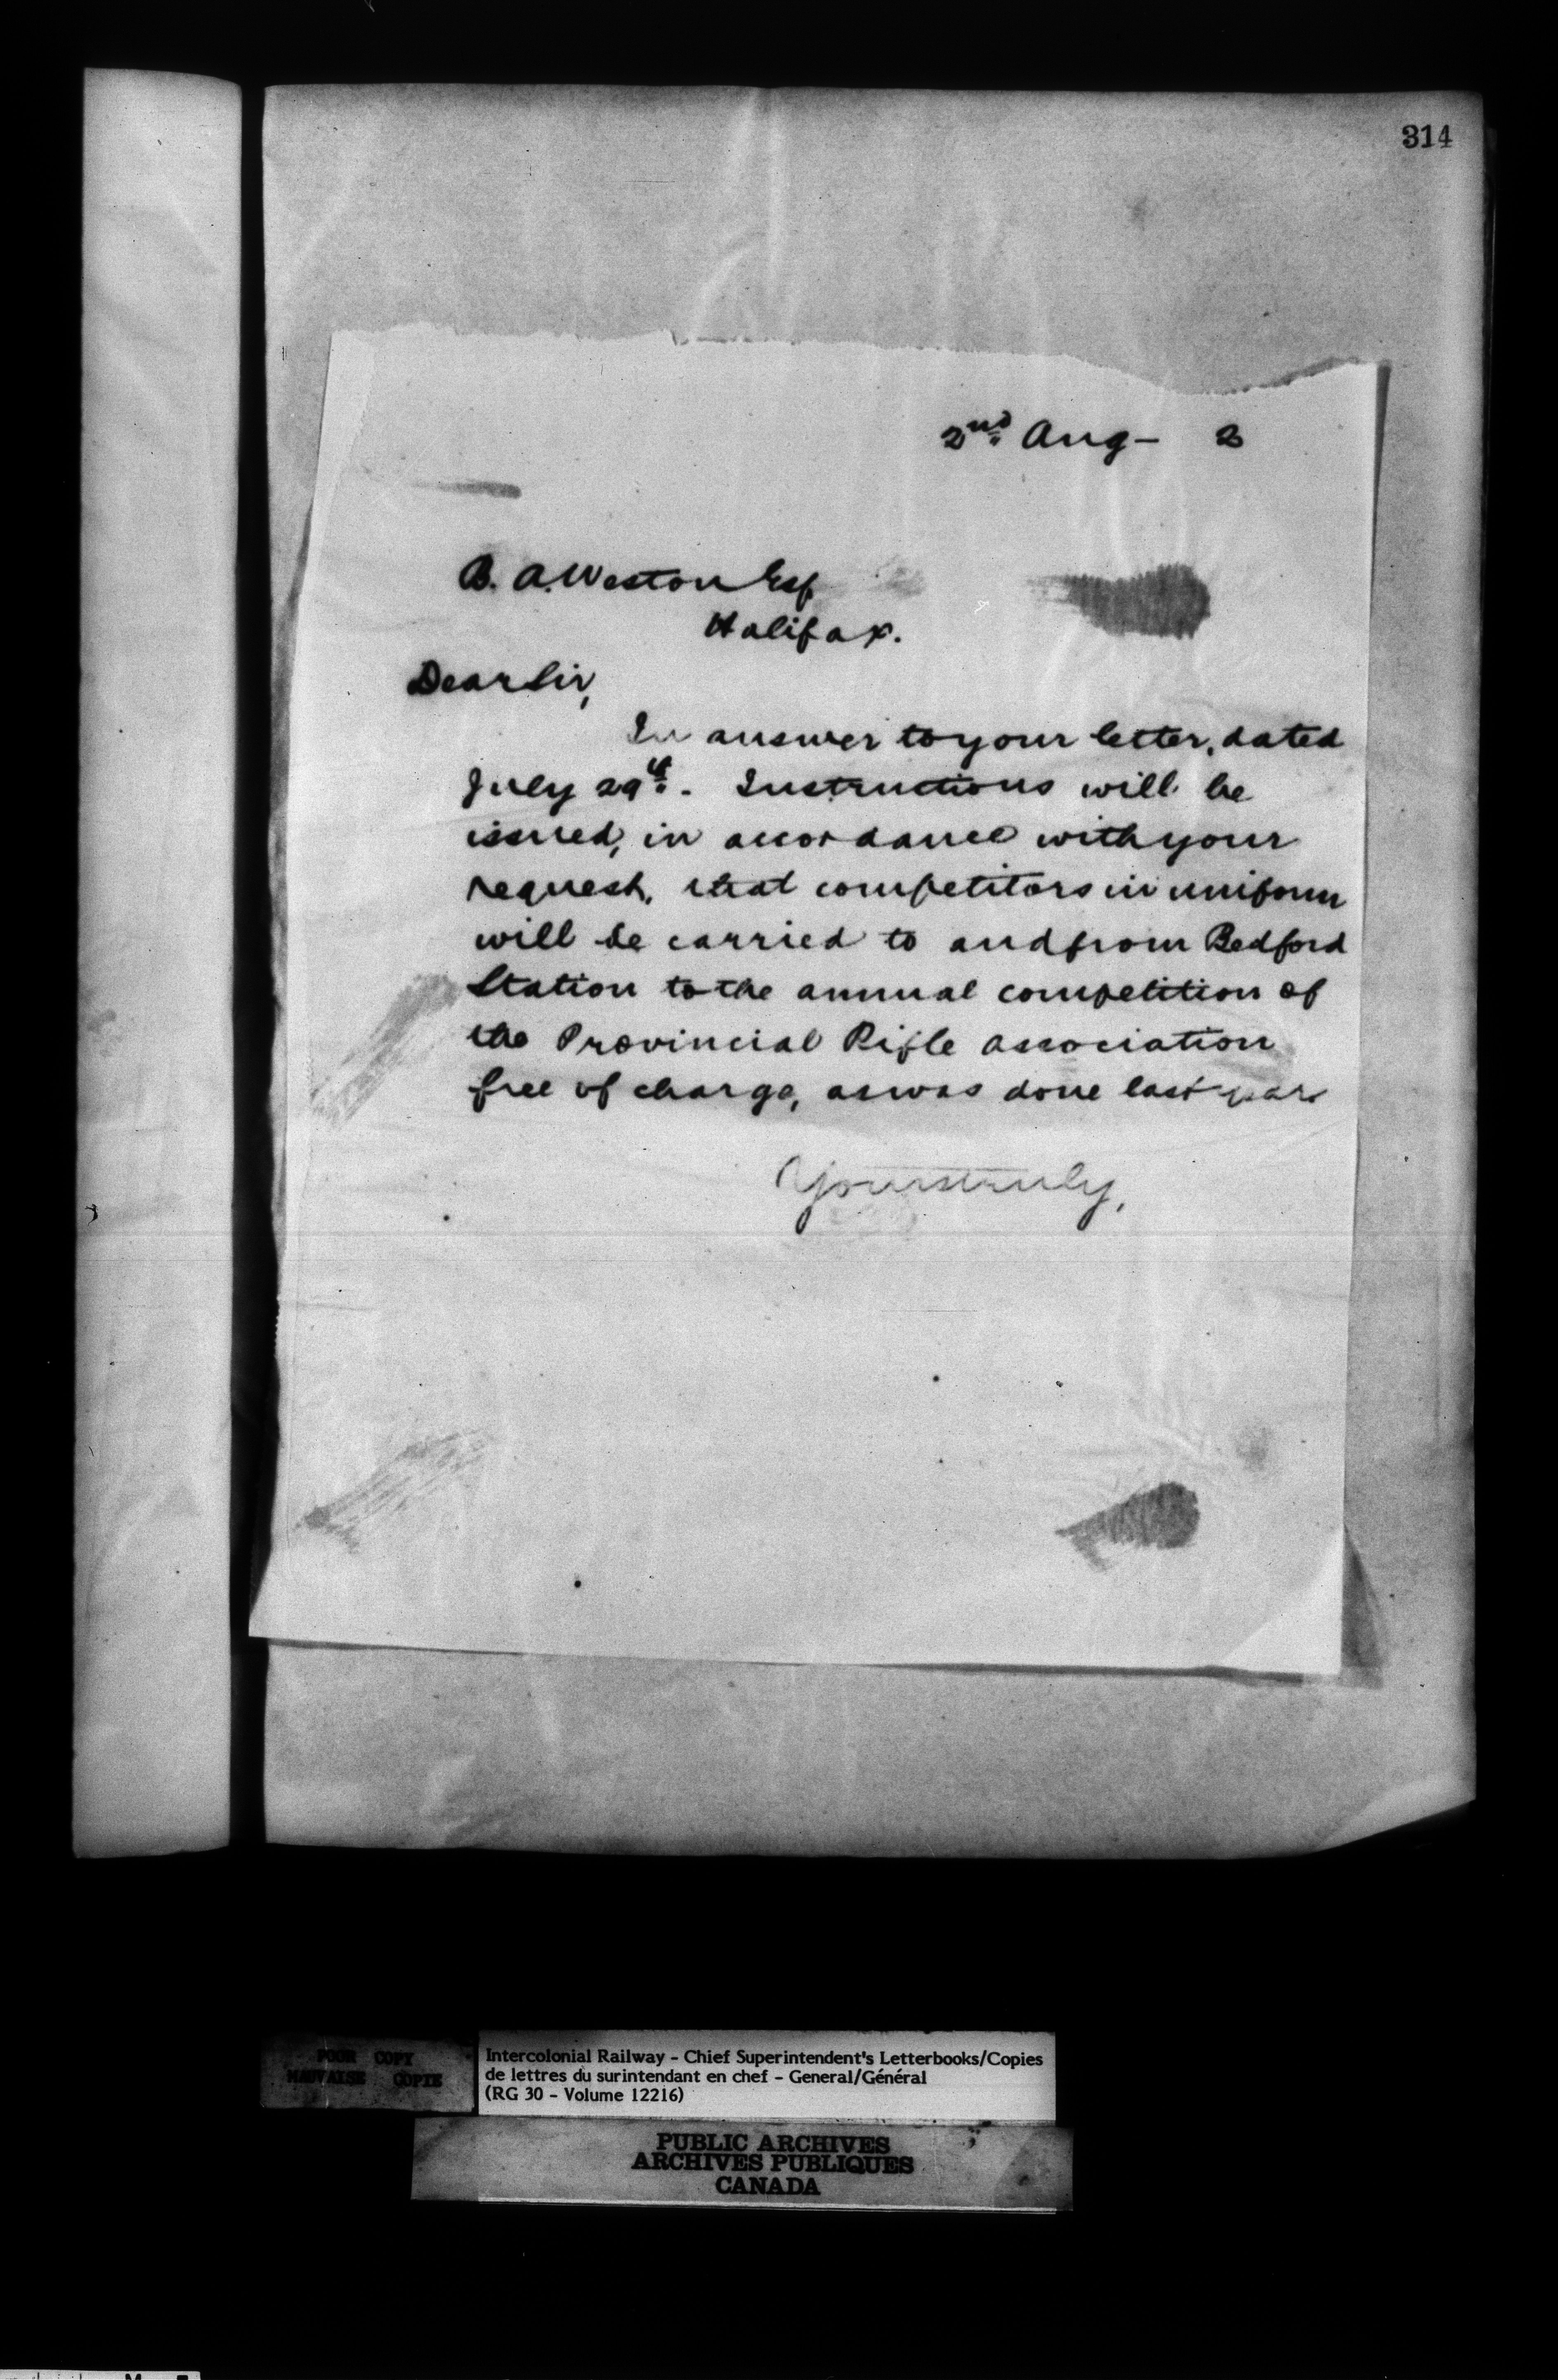 314
2nd Aug - 2
B. A. Weston Esq
Halifax.
Dear Sir,
In answer to your letter, dated
July 29th. Instructions will be
issued, in accordance with your
request, that competitors in uniform
will be carried to and from Bedford
Station to the annual competition of
the Provincial Rifle association
free of charge, as was done last year
Yours truly,
POOR COPY
MAUVAISE COPIE
Intercolonial Railway - Chief Superintendent's Letterbooks/Copies
de lettres du surintendant en chef - General/Général
(RG 30 - Volume 12216)
PUBLIC ARCHIVES
ARCHIVES PUBLIQUES
CANADA